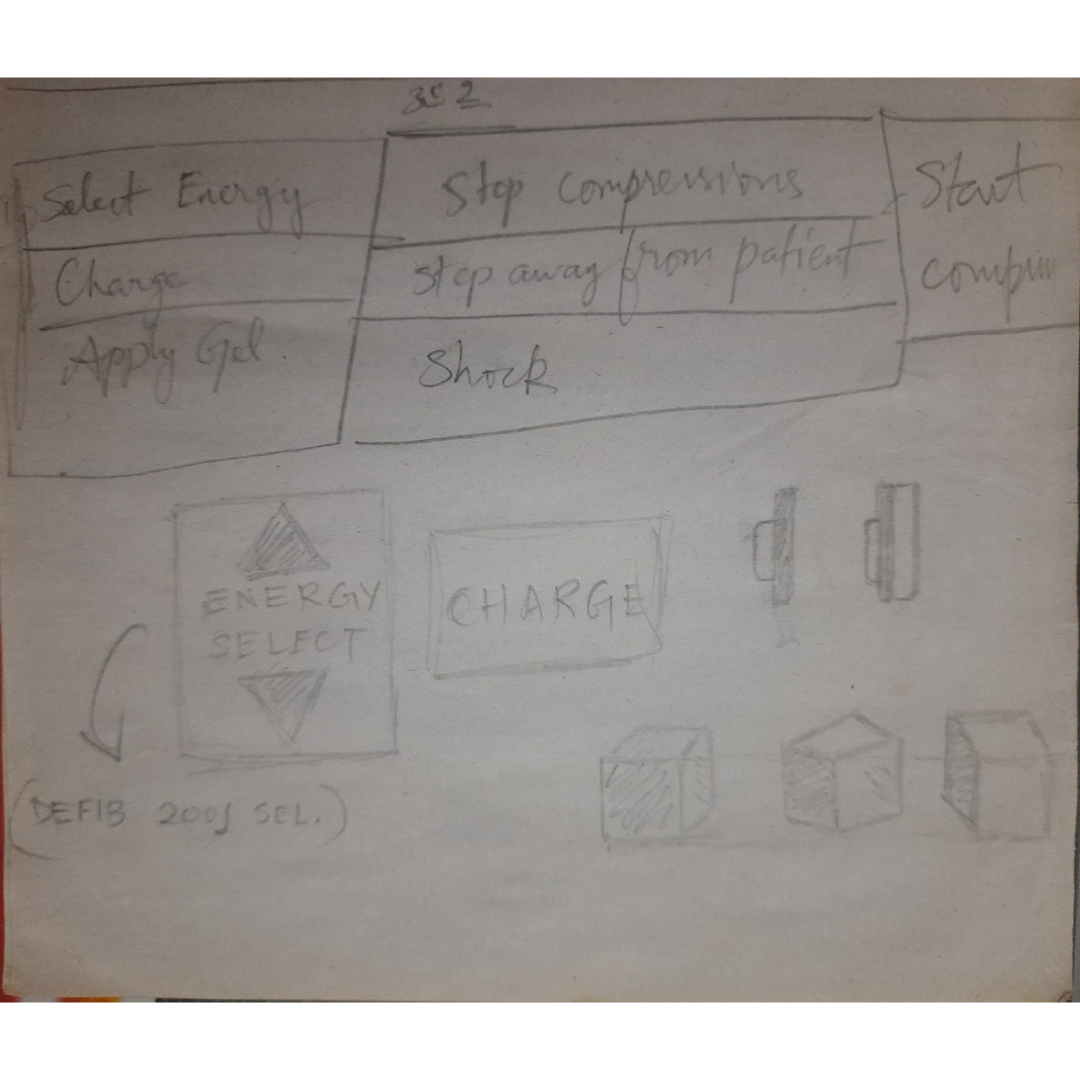 Select Energy
Charge
Apply Gel.
Stop compressions
Step away from patient
Shock
Start
ENERGY
SELECT
CHARGE
(DEFIB 200J SEL.)